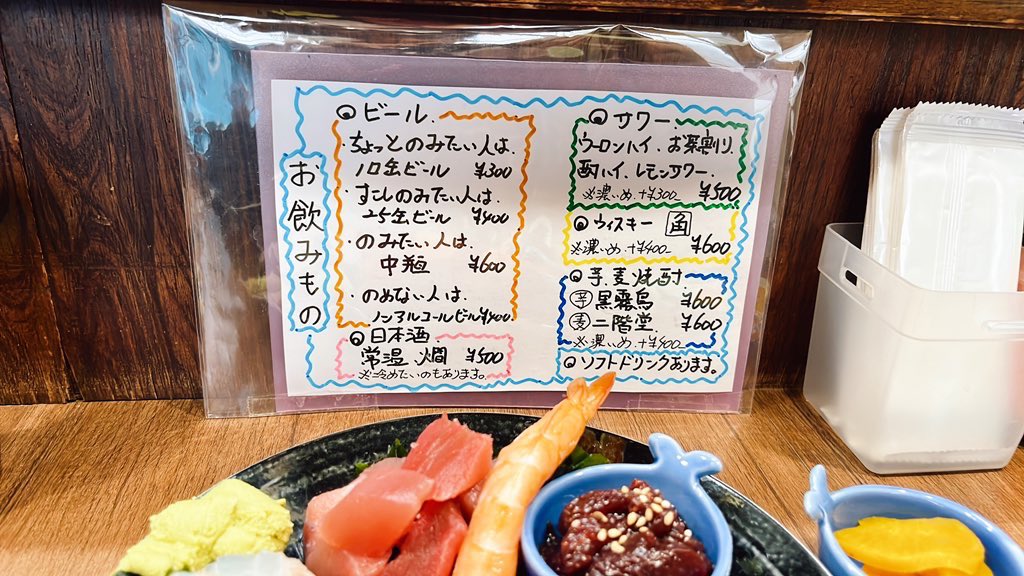 お飲みもの
◎ビール.
・ちょっとのみたい人は.
小缶ビール ¥300
・すこしのみたい人は.
25缶ビール ¥400
・のみたい人は.
中瓶 ¥600
・のめない人は.
ノンアルコールビール¥400
◎日本酒
常温、燗 ¥500
※冷めたいのもあります。
◎サワー
ウーロンハイ、お茶割り、
酎ハイ、レモンサワー、
※濃いめ、+¥300 ¥500
◎ウィスキー 角
※濃いめ、+¥400 ¥600
◎芋、麦焼酎
芋 黒霧島 ¥600
麦 二階堂、 ¥600
※濃いめ、+¥400
◎ソフトドリンクあります。